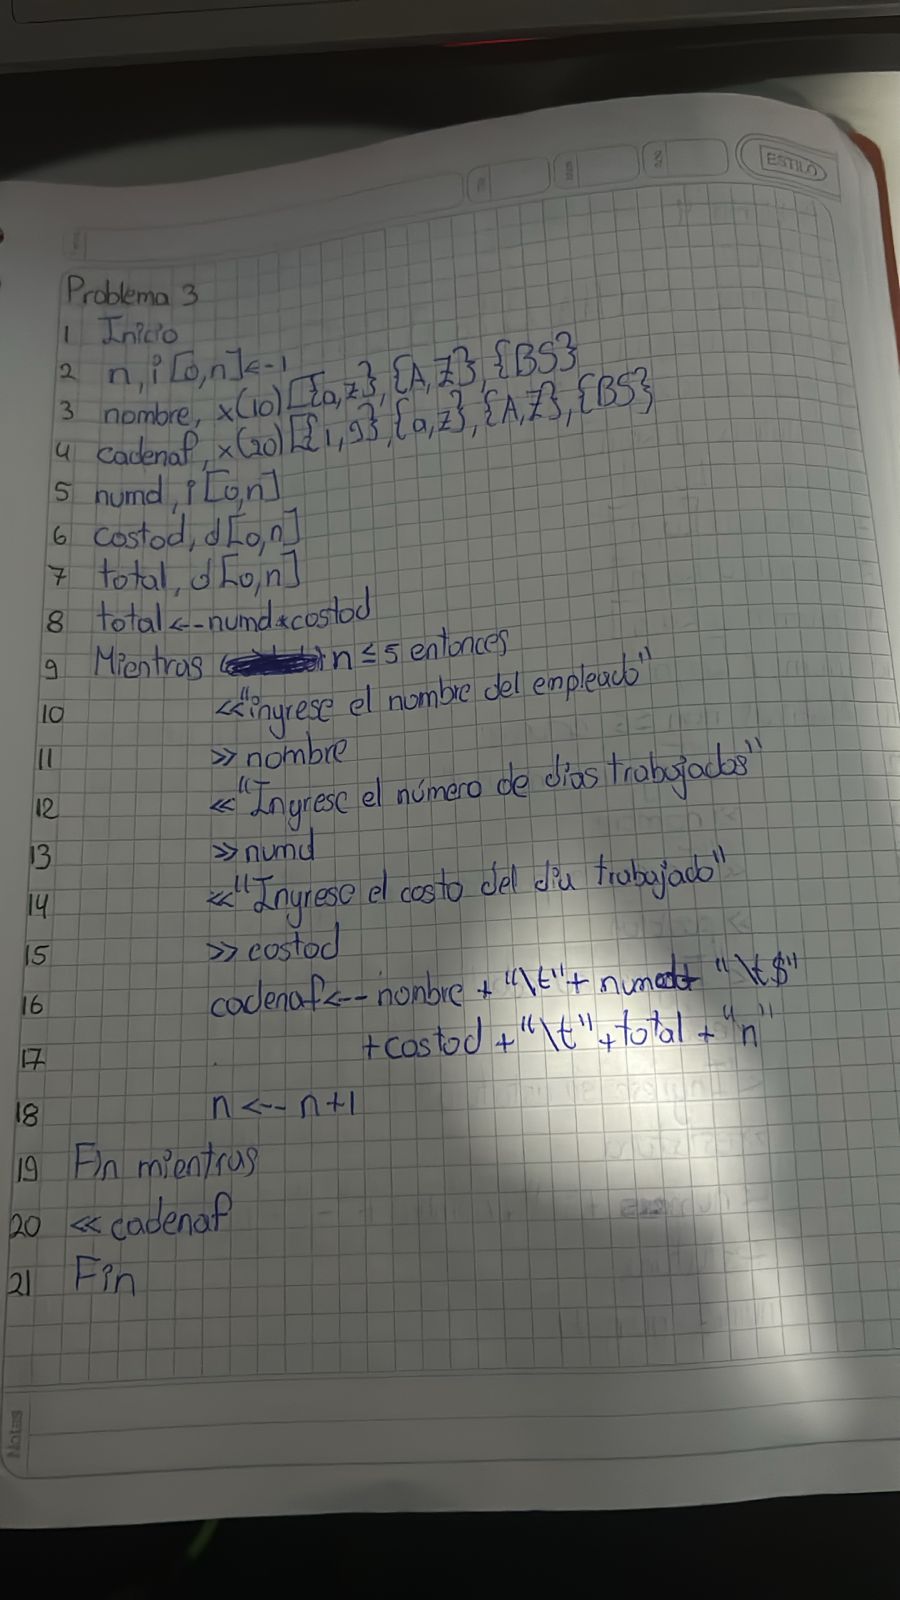 ESTILO
Problema 3
1 Inicio
2 n, i [0,n] <-- 1
3 nombre, x(10) [{a,z}, {A,Z}, {BS}
4 cadenaf, x(20) [{1,9}, {a,z}, {A,Z}, {BS}
5 numd, i [0,n]
6 costod, d[0,n]
7 total, d[0,n]
8 total <-- numd*costod
9 Mientras n ≤ 5 entonces
10 << "ingrese el nombre del empleado"
11 >> nombre
12 << "Ingrese el número de dias trabajados"
13 >> numd
14 << "Ingrese el costo del dia trabajado"
15 >> costod
16 cadenaf <-- nombre + "\t" + numd + "\t$"
17 + costod + "\t" + total + "n"
18 n <-- n+1
19 Fin mientras
20 << cadenaf
21 Fin
Notas